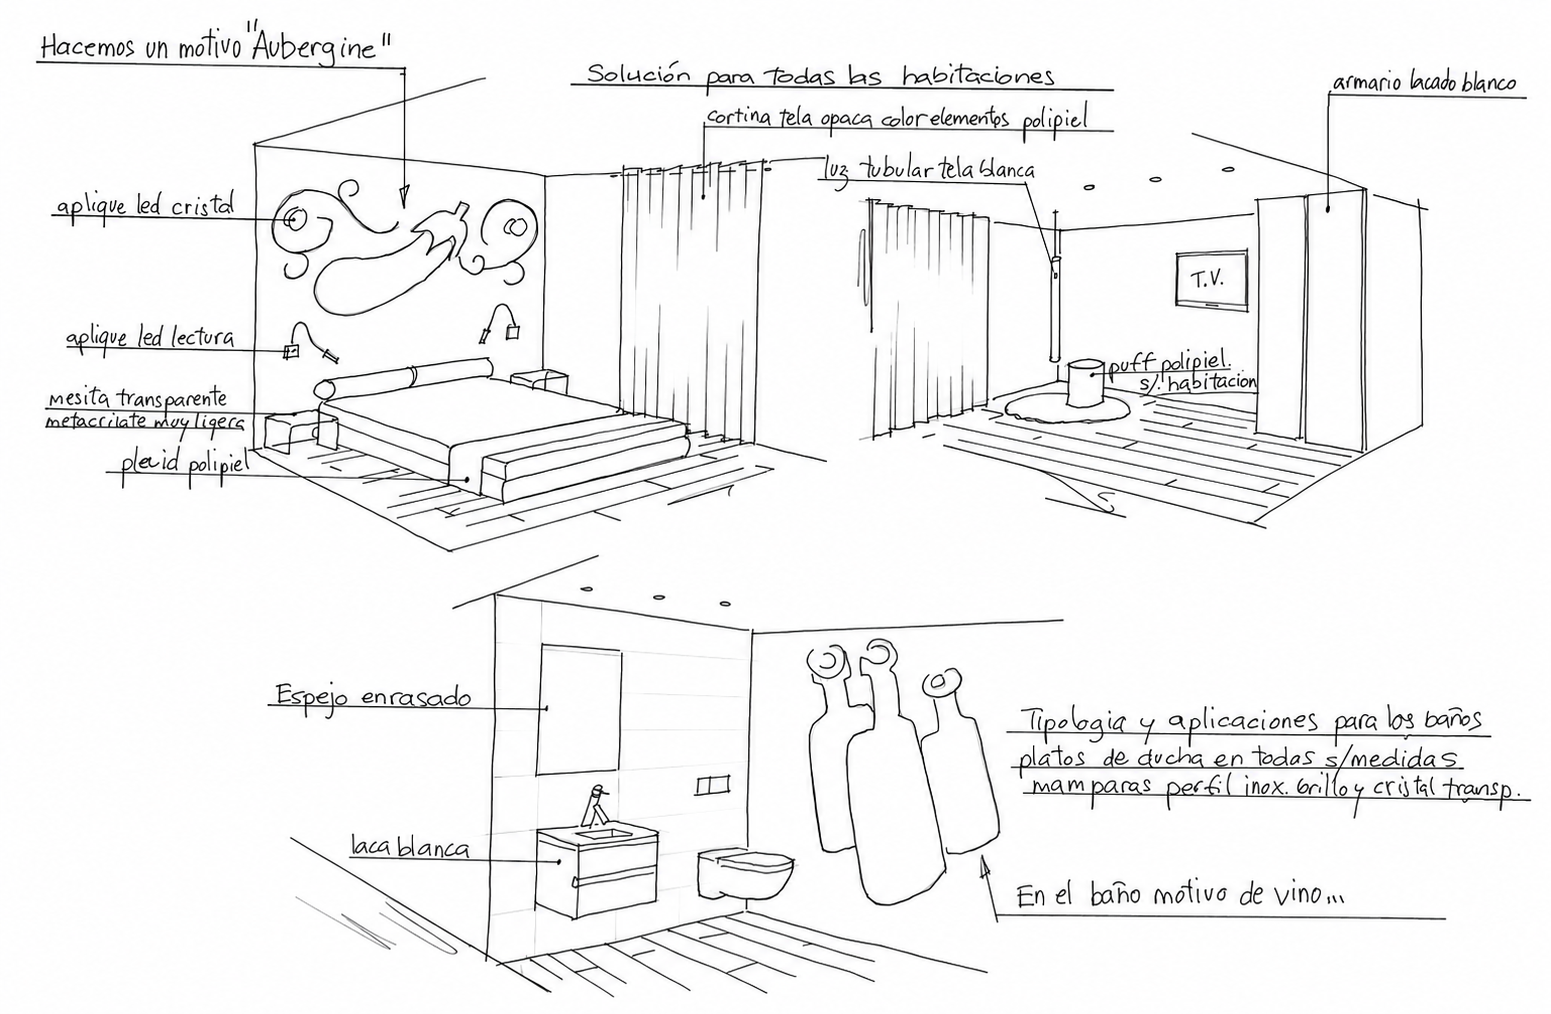 Hacemos un motivo "Aubergine"
Solución para todas las habitaciones
armario lacado blanco
cortina tela opaca color elementos polipiel
luz tubular tela blanca
aplique led cristal
T.V.
aplique led lectura
puff polipiel.
s/. habitacion
mesita transparente
metacrilate muy ligera
polipiel
Espejo enrasado
Tipologia y aplicaciones para los baños
platos de ducha en todas s/medidas
mamparas perfil inox. brillo y cristal transp.
laca blanca
En el baño motivo de vino...